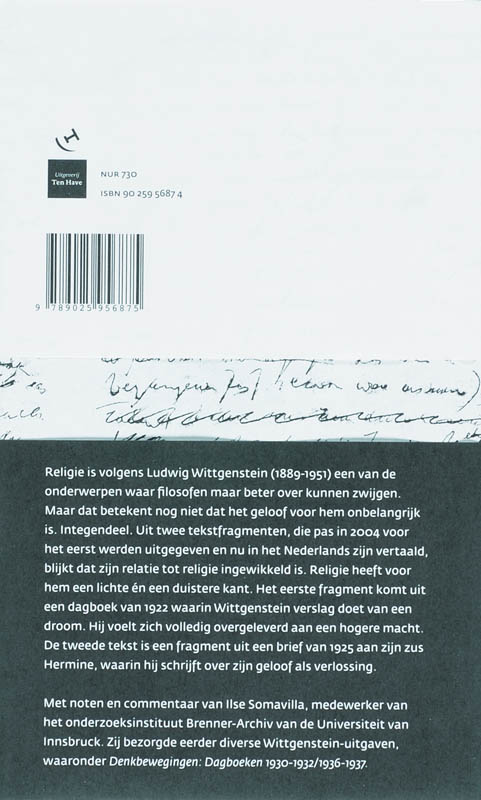 Uitgeverij
Ten Have
NUR 730
ISBN 90 259 5687 4
9 789025 956875
Religie is volgens Ludwig Wittgenstein (1889-1951) een van de
onderwerpen waar filosofen maar beter over kunnen zwijgen.
Maar dat betekent nog niet dat het geloof voor hem onbelangrijk
is. Integendeel. Uit twee tekstfragmenten, die pas in 2004 voor
het eerst werden uitgegeven en nu in het Nederlands zijn vertaald,
blijkt dat zijn relatie tot religie ingewikkeld is. Religie heeft voor
hem een lichte én een duistere kant. Het eerste fragment komt uit
een dagboek van 1922 waarin Wittgenstein verslag doet van een
droom. Hij voelt zich volledig overgeleverd aan een hogere macht.
De tweede tekst is een fragment uit een brief van 1925 aan zijn zus
Hermine, waarin hij schrijft over zijn geloof als verlossing.
Met noten en commentaar van Ilse Somavilla, medewerker van
het onderzoeksinstituut Brenner-Archiv van de Universiteit van
Innsbruck. Zij bezorgde eerder diverse Wittgenstein-uitgaven,
waaronder Denkbewegingen: Dagboeken 1930-1932/1936-1937.